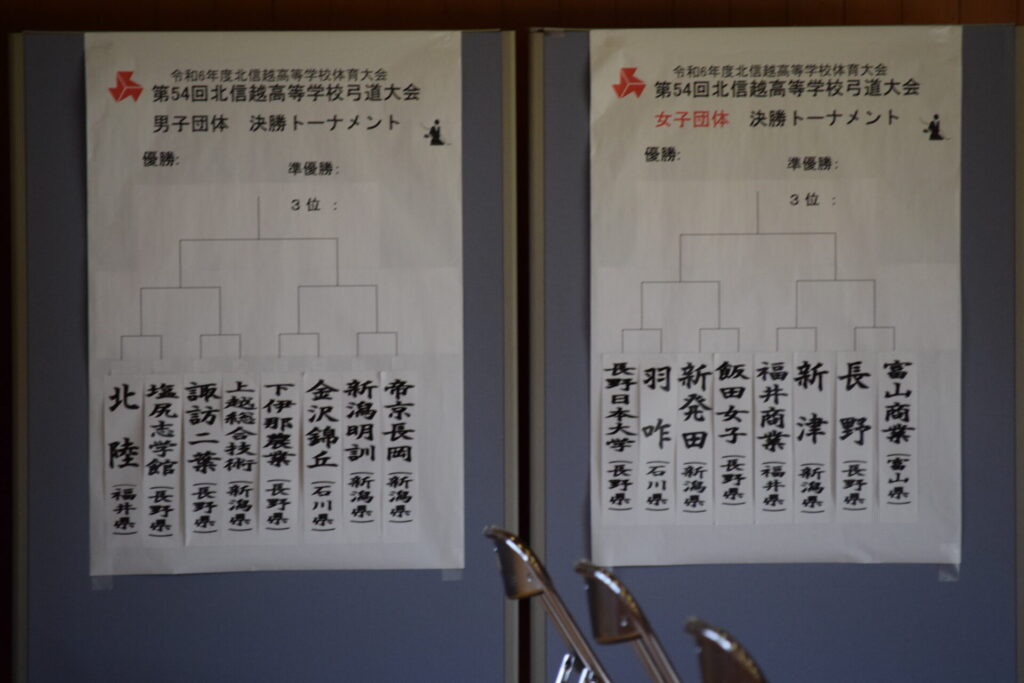 令和6年度北信越高等学校体育大会
第54回北信越高等学校弓道大会
男子団体 決勝トーナメント
優勝:
準優勝:
3位 :
北陸(福井県)
塩尻志学館(長野県)
諏訪二葉(長野県)
上越総合技術(新潟県)
下伊那農業(長野県)
金沢錦丘(石川県)
新潟明訓(新潟県)
帝京長岡(新潟県)
令和6年度北信越高等学校体育大会
第54回北信越高等学校弓道大会
女子団体 決勝トーナメント
優勝:
準優勝:
3位 :
長野日本大学(長野県)
羽咋(石川県)
新発田(新潟県)
飯田女子(長野県)
福井商業(福井県)
新津(新潟県)
長野(長野県)
富山商業(富山県)